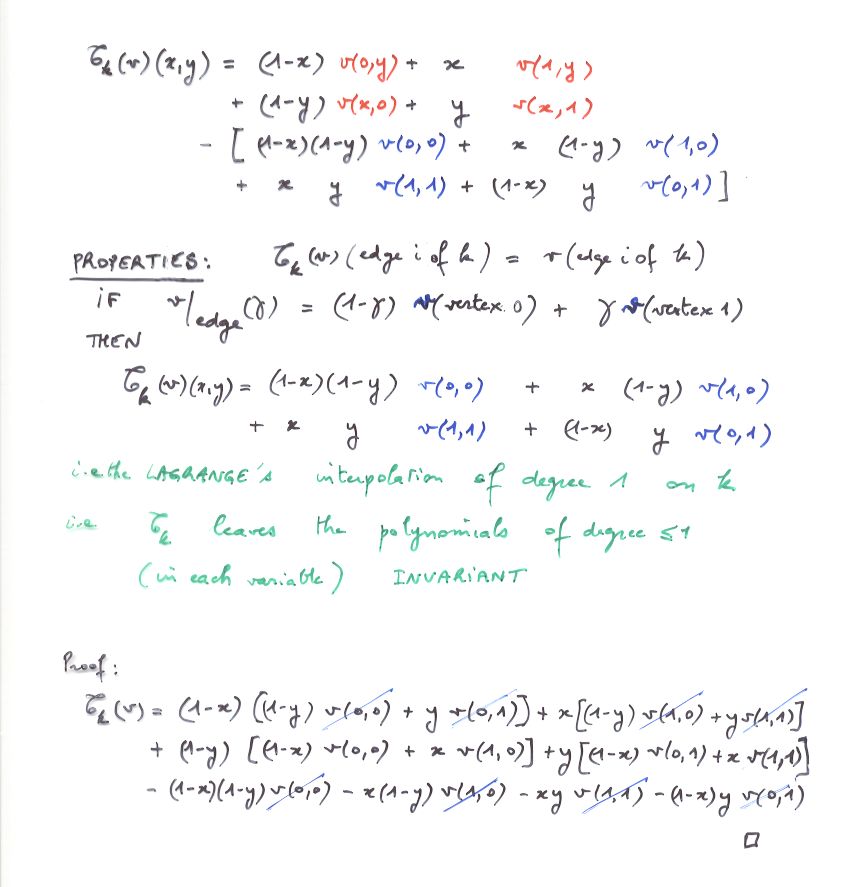 𝒯_k(v)(x,y) = (1-x) v(0,y) + x v(1,y)
+ (1-y) v(x,0) + y v(x,1)
- [ (1-x)(1-y) v(0,0) + x (1-y) v(1,0)
+ x y v(1,1) + (1-x) y v(0,1) ]
PROPERTIES: 𝒯_k(v)(edge i of k) = v(edge i of k)
iF v|_edge(γ) = (1-γ) v(vertex 0) + γ v(vertex 1)
THEN
𝒯_k(v)(x,y) = (1-x)(1-y) v(0,0) + x (1-y) v(1,0)
+ x y v(1,1) + (1-x) y v(0,1)
i.e the LAGRANGE's interpolation of degree 1 on k
i.e. 𝒯_k leaves the polynomials of degree ≤1
(in each variable) INVARIANT
Proof:
𝒯_k(v) = (1-x) [(1-y) v(0,0) + y v(0,1)] + x[(1-y) v(1,0) + y v(1,1)]
+ (1-y) [(1-x) v(0,0) + x v(1,0)] + y[(1-x) v(0,1) + x v(1,1)]
- (1-x)(1-y) v(0,0) - x(1-y) v(1,0) - xy v(1,1) - (1-x)y v(0,1)
□